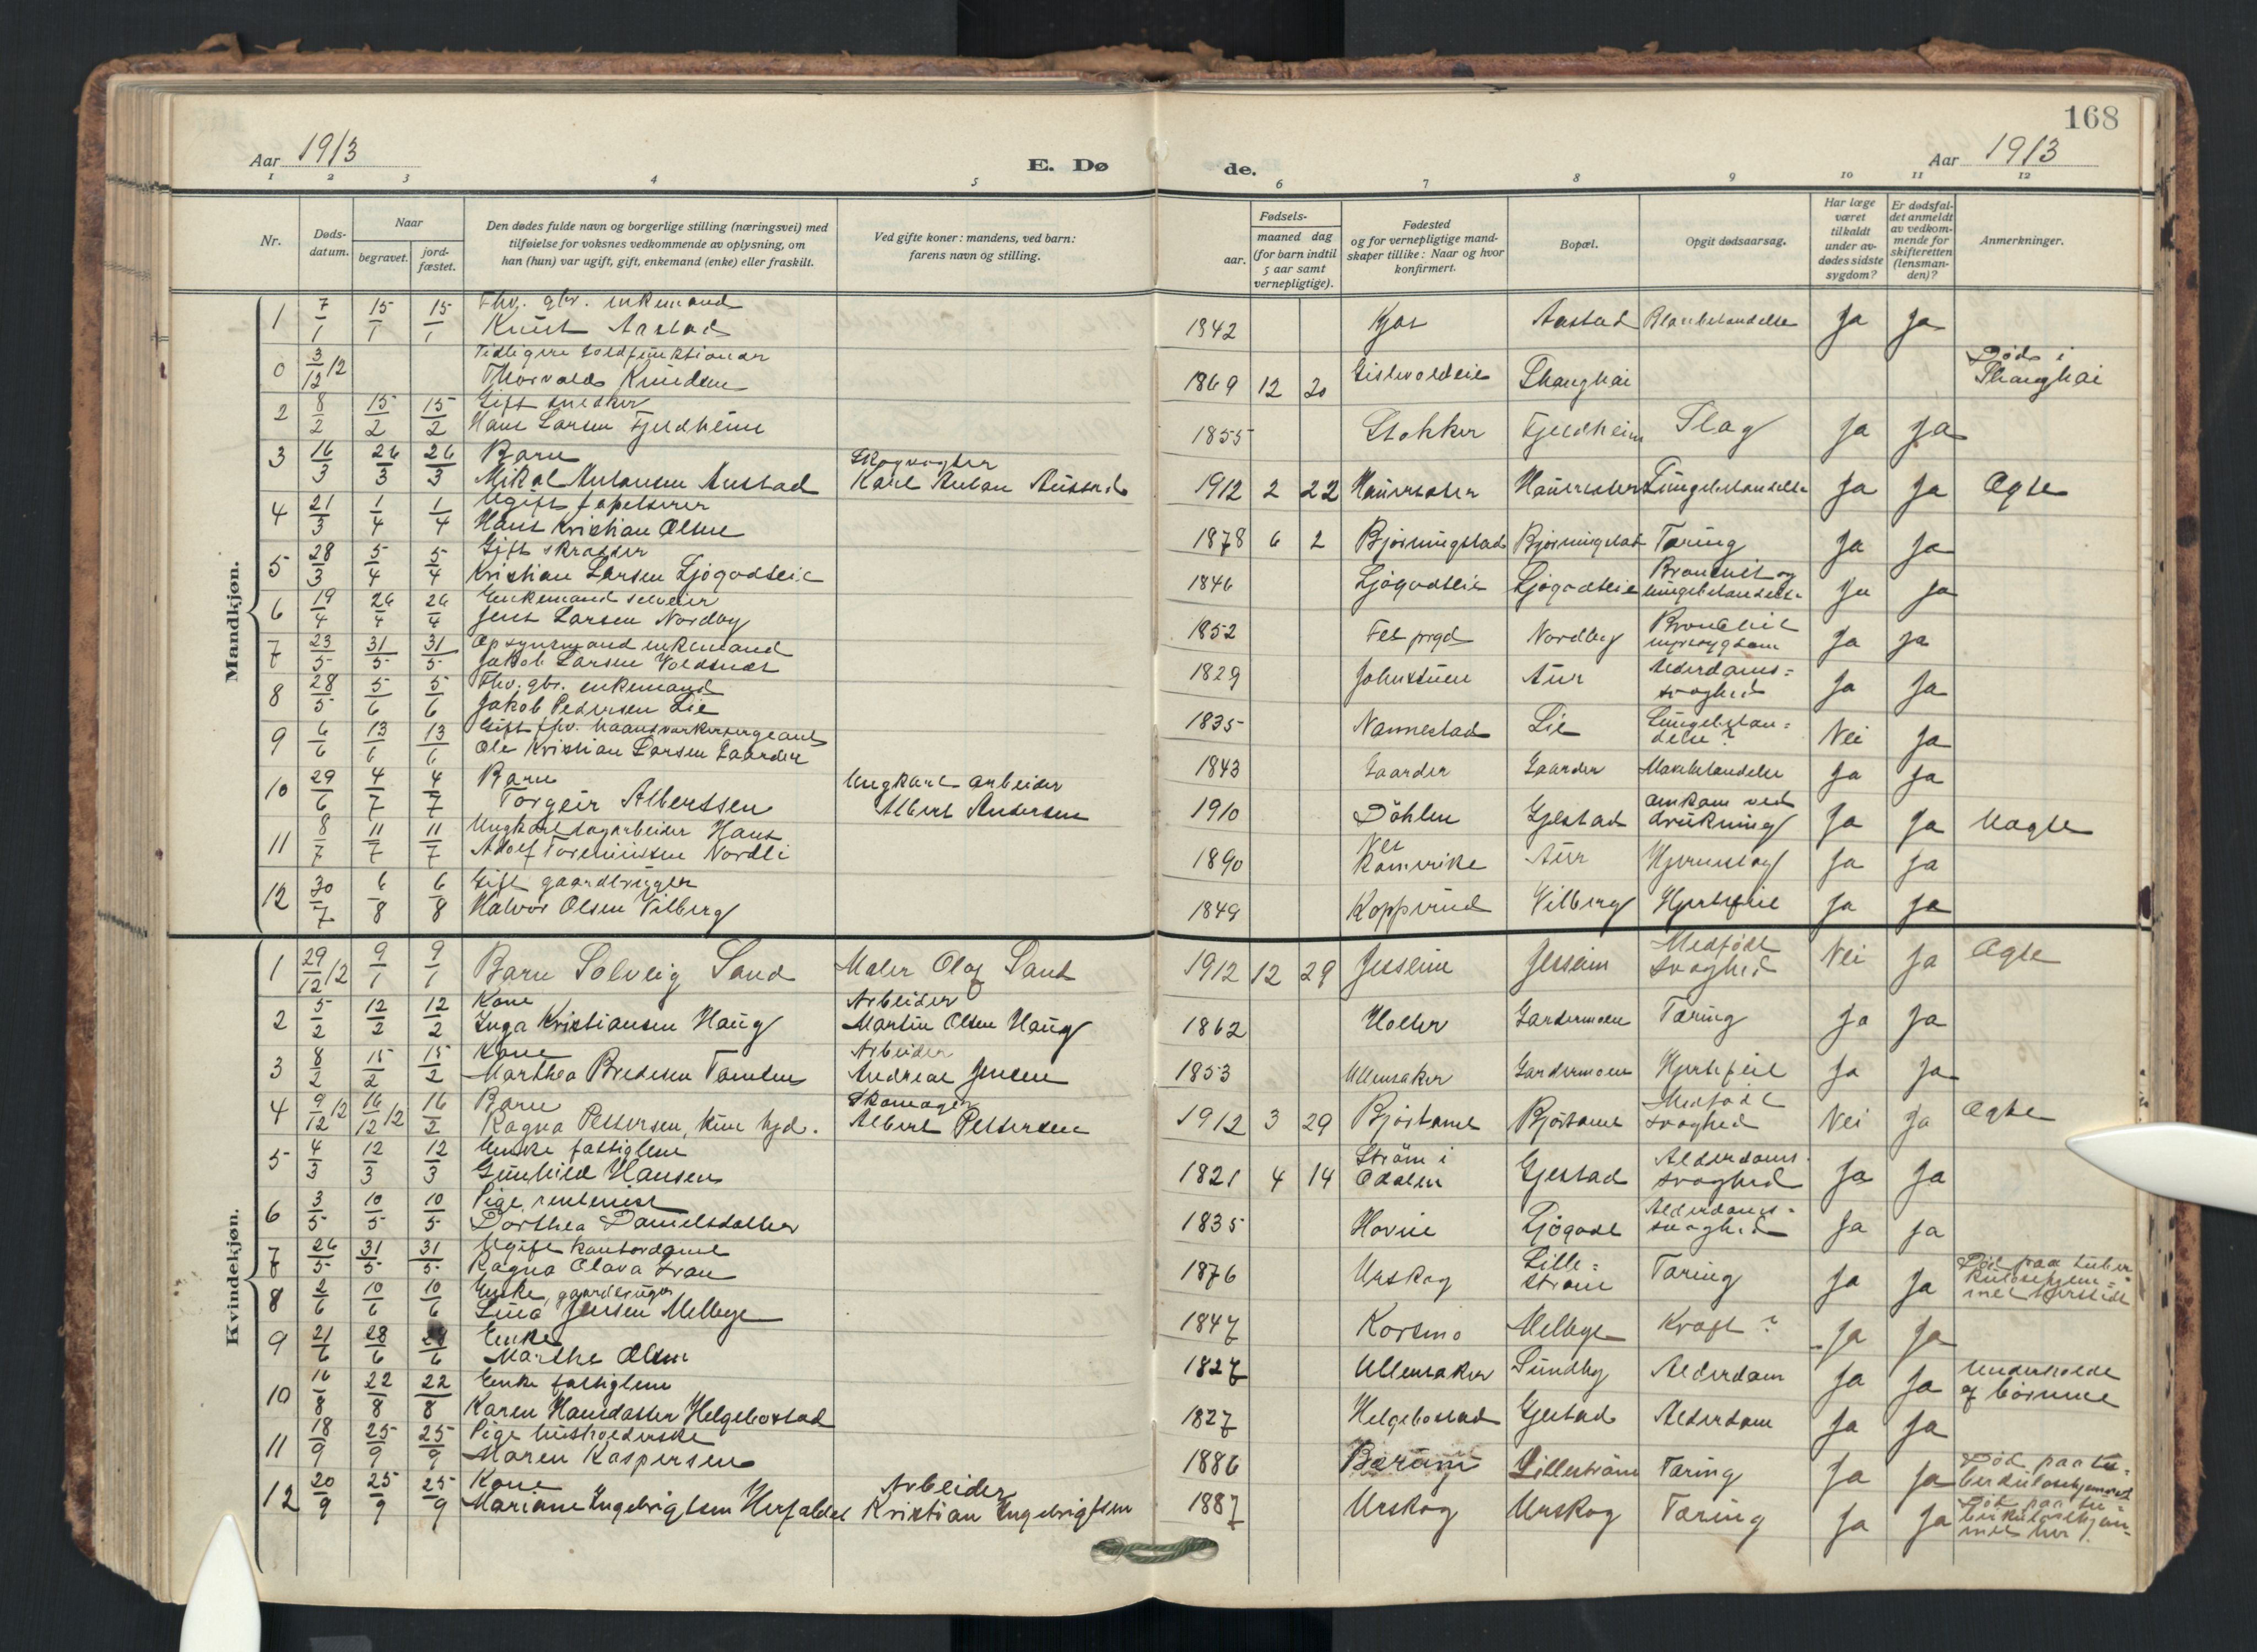 168
Aar 1913
E. Døde.
Aar 1913
1 2 3 4 5 6 7 8 9 10 11 12
Nr.
Døds-
datum.
Naar
begravet.
jord-
fæstet.
Den dødes fulde navn og borgerlige stilling (næringsvei) med
tilføielse for voksnes vedkommende av oplysning, om
han (hun) var ugift, gift, enkemand (enke) eller fraskilt.
Ved gifte koner: mandens, ved barn:
farens navn og stilling.
Fødsels-
aar.
maaned dag
(for barn indtil
5 aar samt
vernepligtige).
Fødested
og for vernepligtige mand-
skaper tillike: Naar og hvor
konfirmert.
Bopæl.
Opgit dødsaarsag.
Har læge
været
tilkaldt
under av-
dødes sidste
sygdom?
Er dødsfal-
det anmeldt
av vedkom-
mende for
skifteretten
(lensman-
den)?
Anmerkninger.
Mandkjøn.
1 7/1 15/1 15/1 Fhv. gbr. enkemand
Knut Aastad 1842 Kjos Aastad Ja Ja
0 3/12 12 Tidligere toldfunktionær
Thorvald Knudsen 1869 12 20 Shanghai Død i
Shanghai
2 8/2 15/2 15/2 Gift snedker
Hans Larsen Fjeldheim 1855 Stokker Fjeldheim Slag Ja Ja
3 16/3 26/3 26/3 Barn
Mikal Antonsen Austad Skogvogter
Karl Anton Austad 1912 2 22 Hauerseter Hauerseter Lungebetændelse Ja Ja Ægte
4 21/3 1/4 1/4 Ugift tapetserer
Hans Kristian Olsen 1878 6 2 Bjørningstad Bjørningstad Tæring Ja Ja
5 28/3 5/4 5/4 Gift skrædder
Kristian Larsen Ljøgodteie 1846 Ljøgodteie Ljøgodteie Bronchit og
lungebetændelse Ja Ja
6 19/4 26/4 26/4 Enkemand selveier
Jens Larsen Nordby 1852 Fet prgd Nordby Bronchit
nyresygdom Ja Ja
7 23/5 31/5 31/5 Opsynsmand enkemand
Jakob Larsen Voldsnes 1829 Johnstuen Aur Alderdoms=
svaghed Ja Ja
8 28/5 5/6 5/6 Fhv. gbr. enkemand
Jakob Pedersen Lie 1835 Nannestad Lie Lungebetæn=
delse? Nei Ja
9 6/6 13/6 13/6 Gift fhv. haandverkersergeant
Ole Kristian Larsen Gaarder 1843 Gaarder Gaarder Mavebetændelse Ja Ja
10 29/6 4/7 4/7 Barn
Torgeir Albertsen Ungkarl arbeider
Albert Andersen 1910 Døhlen Gjestad omkom ved
drukning Ja Ja Uægte
11 8/7 11/7 11/7 Ungkarl dagarbeider Hans
Adolf Toreniussen Nordli 1890 Nes
Romerike Aur Hjerneslag Ja Ja
12 30/7 6/8 6/8 Gift gaardbruger
Halvor Olsen Vilberg 1849 Kopperud Vilberg Hjertefeil Ja Ja
Kvindekjøn.
1 29/12 12 9/1 9/1 Barn Solveig Sand Maler Olaf Sand 1912 12 29 Jessheim Jessheim Medfødt
svaghed Nei Ja Ægte
2 5/2 12/2 12/2 Kone
Inga Kristiansen Haug Arbeider
Martin Olsen Haug 1862 Holter Gardermoen Tæring Ja Ja
3 8/2 15/2 15/2 Kone
Marthea Bredesen Tomten Arbeider
Andreas Jensen 1853 Ullensaker Gardermoen Hjertefeil Ja Ja
4 9/12 12 16/12 12 16/2 Barn
Ragna Pettersen, kun hjd. Skomager
Albert Pettersen 1912 3 29 Bjørtomt Bjørtomt Medfødt
svaghed Nei Ja Ægte
5 4/3 12/3 12/3 Enke fattiglem
Gunhild Hansen 1821 4 14 Strøm i
Odalen Gjestad Alderdoms
svaghed Ja Ja
6 3/5 10/5 10/5 Pige rentenist
Dorthea Danielsdatter 1835 Hovin Ljøgodt Alderdoms-
svaghed Ja Ja
7 26/5 31/5 31/5 Ugift kontordame
Ragna Olava Svae 1876 Urskog Lille=
strøm Tæring Ja Ja Død paa tuber
kulosehjem=
met
8 2/6 10/6 10/6 Enke, gaardbruger
Lina Jensen Melbye 1847 Korsmo Melbye Kræft? Ja Ja
9 21/6 28/6 28/6 Enke
Marthe Olsen 1827 Ullensaker Sundby Alderdom Ja Ja Underholdt
af børnene
10 16/8 22/8 22/8 Enke fattiglem
Karen Hansdatter Helgebostad 1827 Helgebostad Gjestad Alderdom Ja Ja
11 18/9 25/9 25/9 Pige husholderske
Maren Kaspersen 1886 Bærum Lillestrøm Tæring Ja Ja Død paa tu=
berkulosehjemmet
12 20/9 25/9 25/9 Kone
Mariane Ingebrigtsen Herfaldet Arbeider
Kristian Ingebrigtsen 1887 Urskog Urskog Tæring Ja Ja Død paa tu=
berkulosehjem-
met her.